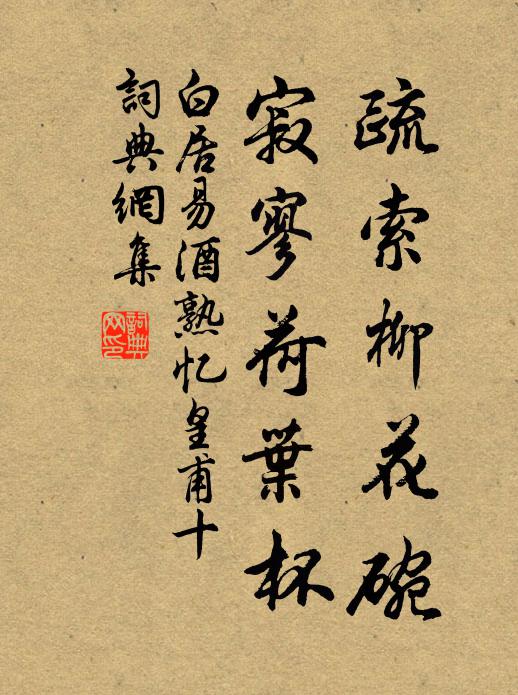 疏索柳花碗
寂寥荷葉杯
白居易酒熟忆皇甫十
詞典網集
詞典
网印